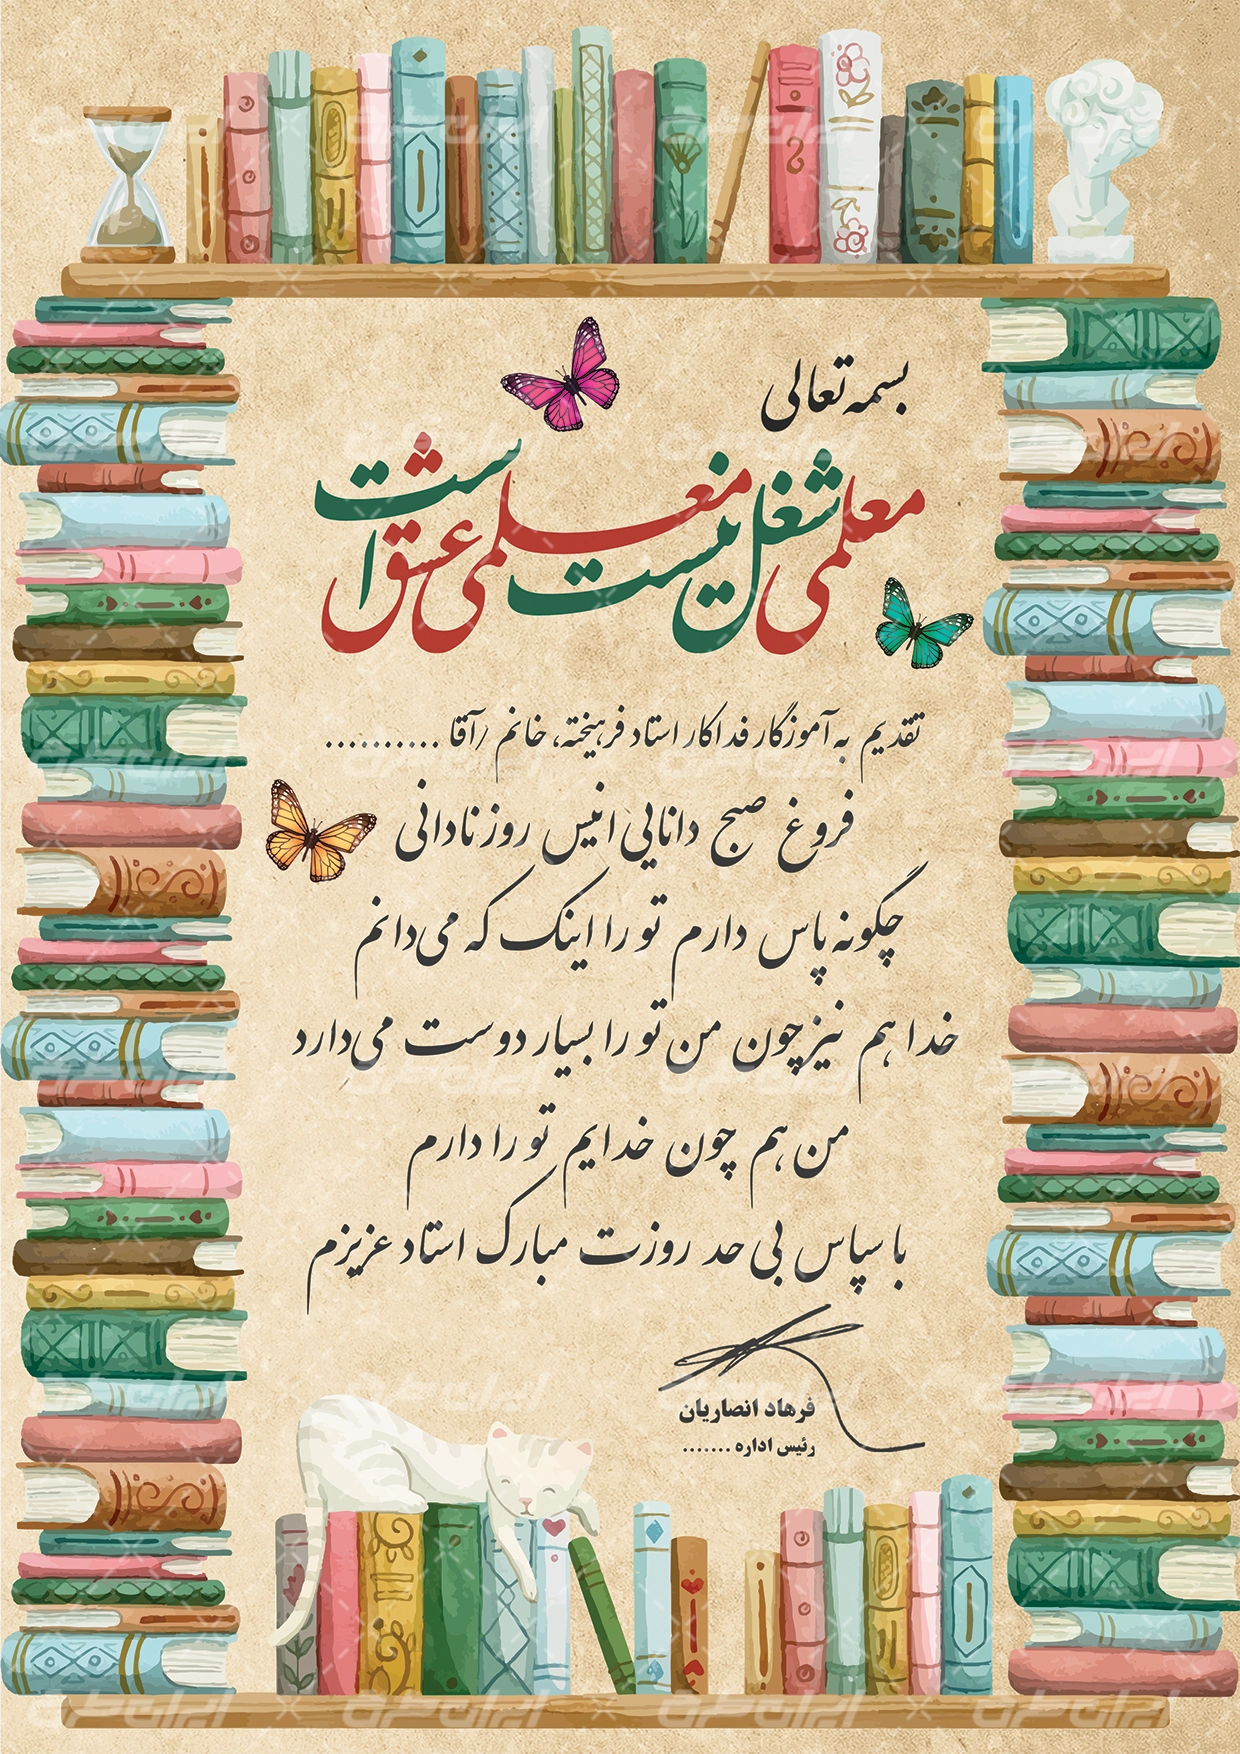 بسمه تعالی
معلمی شغل نیست معلمی عشق است
تقدیم به آموزگار فداکار استاد فرهیخته، خانم /آقا ..........
فروغ صبح دانایی انیس روز نادانی
چگونه پاس دارم تو را اینک که می‌دانم
خدا هم نیز چون من تو را بسیار دوست می‌دارد
من هم چون خدایم تو را دارم
با سپاس بی حد روزت مبارک استاد عزیزم
فرهاد انصاریان
رئیس اداره .......